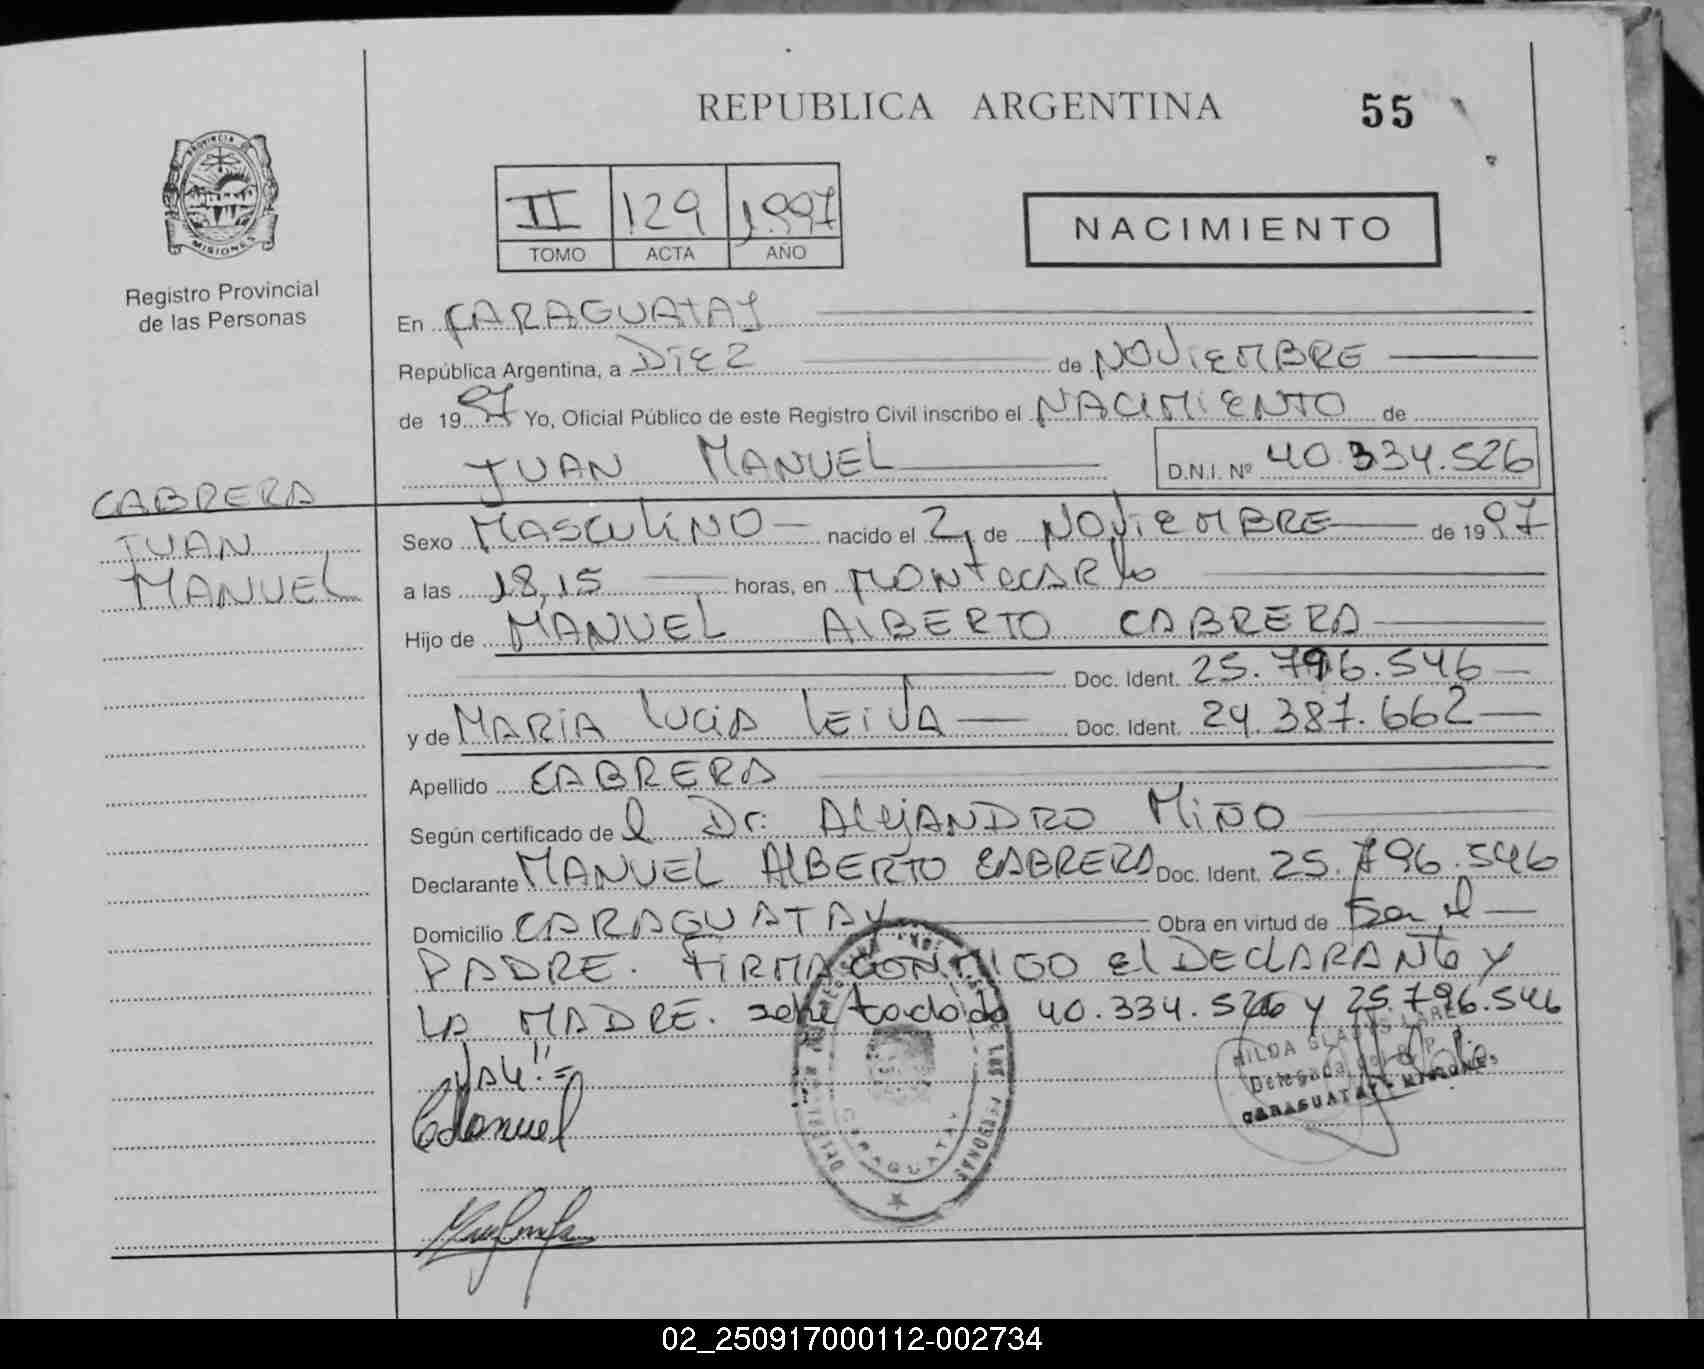 REPUBLICA ARGENTINA
55
PROVINCIA DE
MISIONES
Registro Provincial
de las Personas
II 129 1997
TOMO ACTA AÑO
NACIMIENTO
En CARAGUATAY
República Argentina, a DIEZ de NOVIEMBRE
de 1997 Yo, Oficial Público de este Registro Civil inscribo el NACIMIENTO de
JUAN MANUEL D.N.I. Nº 40.334.526
CABRERA
JUAN
MANUEL
Sexo MASCULINO nacido el 2 de NOVIEMBRE de 1997
a las 18,15 horas, en MONTECARLO
Hijo de MANUEL ALBERTO CABRERA
Doc. Ident. 25.796.546
y de MARIA LUCIA LEIVA Doc. Ident. 24.387.662
Apellido CABRERA
Según certificado de l Dr. ALEJANDRO MIÑO
Declarante MANUEL ALBERTO CABRERA Doc. Ident. 25.796.546
Domicilio CARAGUATAY Obra en virtud de Ser el
PADRE. FIRMA CONMIGO el DECLARANTE Y
LA MADRE. sobre todo 40.334.526 y 25.796.546
VALE
Manuel
CARAGUATAY
DE LAS PERSONAS
HILDA GLADYS
Delegada
CARAGUATAY - MISIONES
02_250917000112-002734